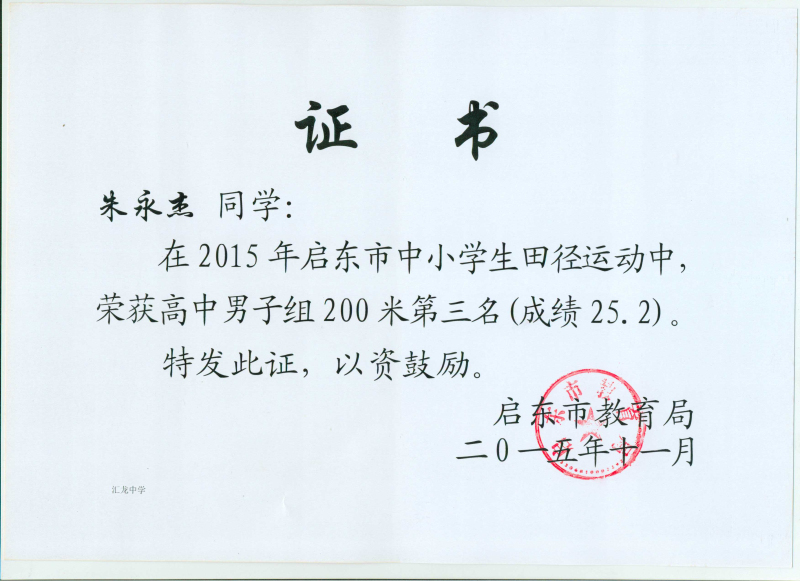 证 书
朱永杰 同学：
在2015年启东市中小学生田径运动中，
荣获高中男子组200米第三名(成绩25.2)。
特发此证，以资鼓励。
启东市教育局
二0一五年十一月
汇龙中学